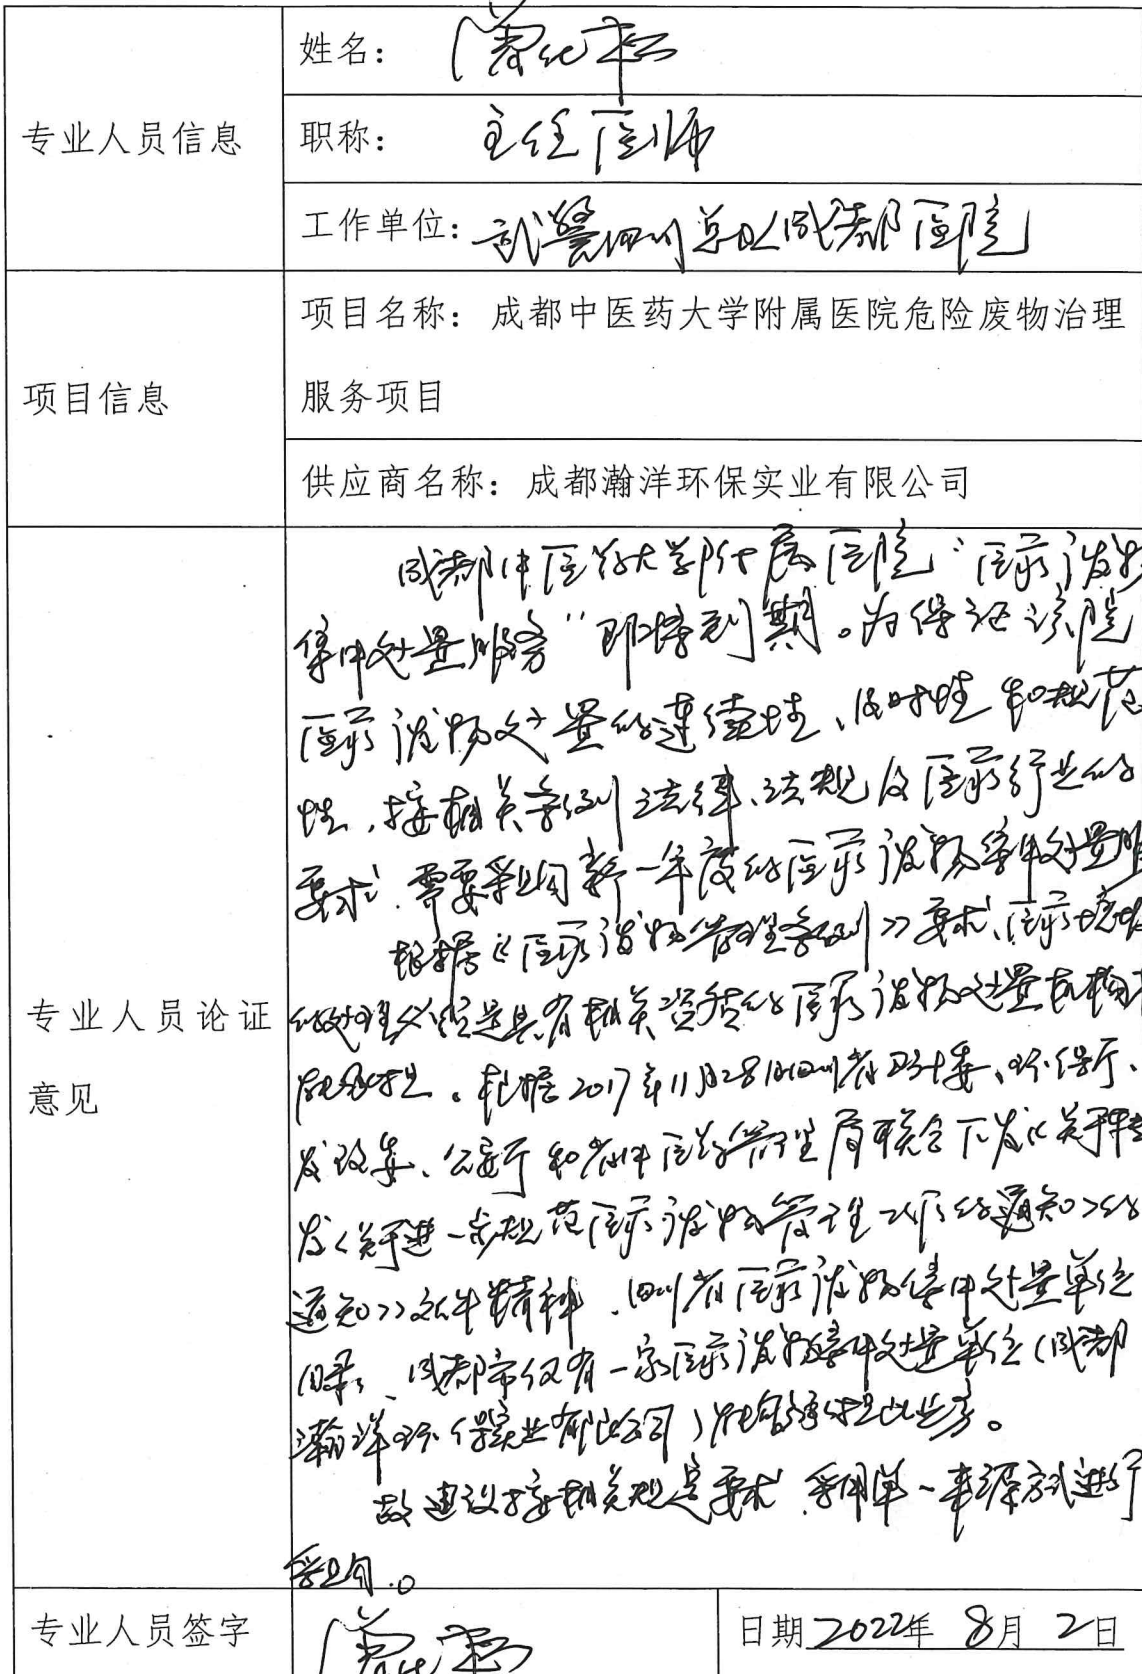 专业人员信息
姓名：
职称： 主任医师
工作单位：武警四川总队成都医院
项目信息
项目名称：成都中医药大学附属医院危险废物治理
服务项目
供应商名称：成都瀚洋环保实业有限公司
专业人员论证
意见
成都中医药大学附属医院“医疗废物
集中处置服务”即将到期。为保证该院
医疗废物处置的连续性、及时性和规范
性，按相关条例、法律、法规及医疗行业的
要求，需要采购新一年度的医疗废物集中处置服
根据《医疗废物管理条例》要求，医疗垃圾
的处理必须是具有相关资质的医疗废物处置机构才
能承担。根据2017年11月28日四川省卫计委、环保厅、
发改委、公安厅和省中医药管理局联合下发《关于转
发〈关于进一步规范医疗废物管理工作的通知〉的
通知》文件精神，四川省医疗废物集中处置单位
目录，成都市仅有一家医疗废物集中处置单位（成都
瀚洋环保实业有限公司）能够承担此业务。
故建议按相关规定要求，采用单一来源方式进行
采购。
专业人员签字
日期 2022年 8月 2日